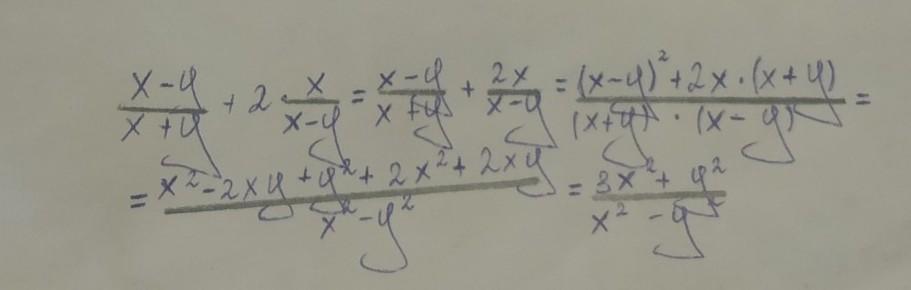 (x-y)/(x+y) + 2·x/(x-y) = (x-y)/(x+y) + 2x/(x-y) = ((x-y)²+2x·(x+y))/((x+y)·(x-y)) =
= (x²-2xy+y²+2x²+2xy)/(x²-y²) = (3x²+y²)/(x²-y²)